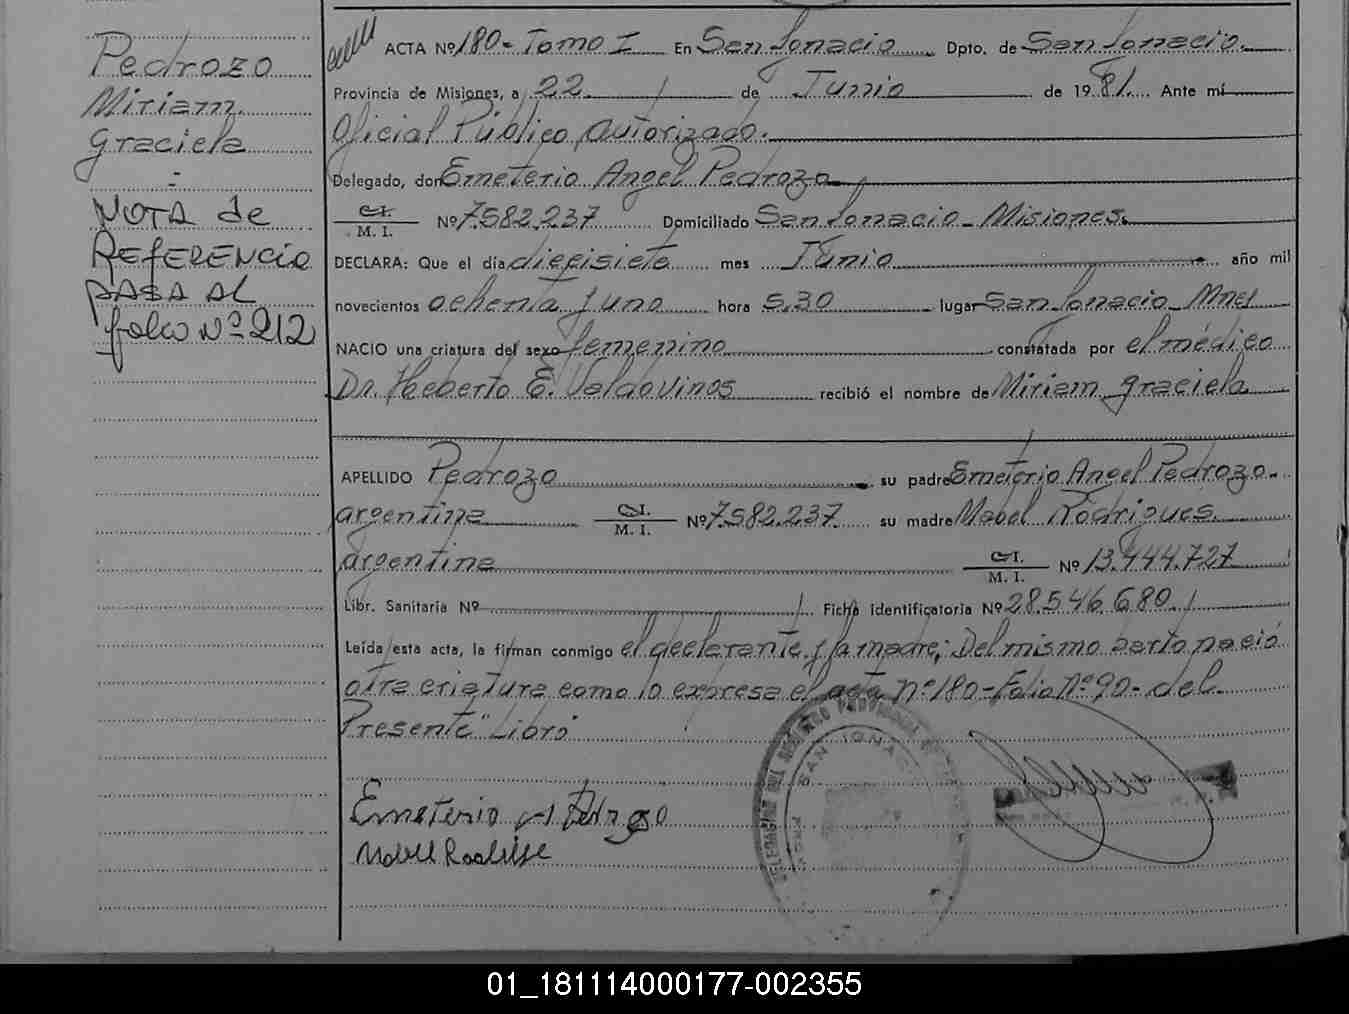 Pedrozo
Miriam
Graciela
-
NOTA de
REFERENCIA
PASA AL
folio Nº 212
ACTA Nº 180- Tomo I En San Ignacio Dpto. de San Ignacio.
Provincia de Misiones, a 22. de Junio de 1981. Ante mí
Oficial Público Autorizado.
Delegado, don Emeterio Angel Pedrozo
C.I.
M. I. Nº 7.582.237 Domiciliado San Ignacio - Misiones.
DECLARA: Que el día diecisiete mes Junio año mil
novecientos ochenta y uno hora 5.30 lugar San Ignacio Mnes
NACIO una criatura del sexo femenino constatada por el médico
Dr. Heberto E. Valdovinos recibió el nombre de Miriam Graciela
APELLIDO Pedrozo su padre Emeterio Angel Pedrozo.
argentina C.I.
M. I. Nº 7.582.237 su madre Mabel Rodrigues
argentina C.I.
M. I. Nº 13.444.727
Libr. Sanitaria Nº Ficha identificatoria Nº 28.546.680
Leída esta acta, la firman conmigo el declarante y la madre; Del mismo parto nació
otra criatura como lo expresa el acta nº 180- Folio Nº 90- del
Presente "Libro"
Emeterio A Pedrozo
SAN IGNA
01_181114000177-002355